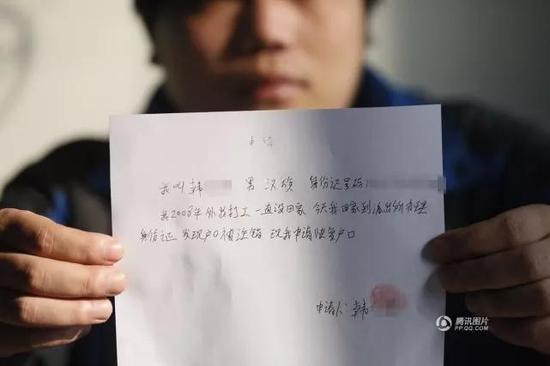 我叫韩 男 汉族 身份证号码:
我2008年外出打工一直没回家 今天我回家到派出所办理
身份证 发现户口被注销 现我申请恢复户口
申请人:韩
腾讯图片
PP.QQ.COM